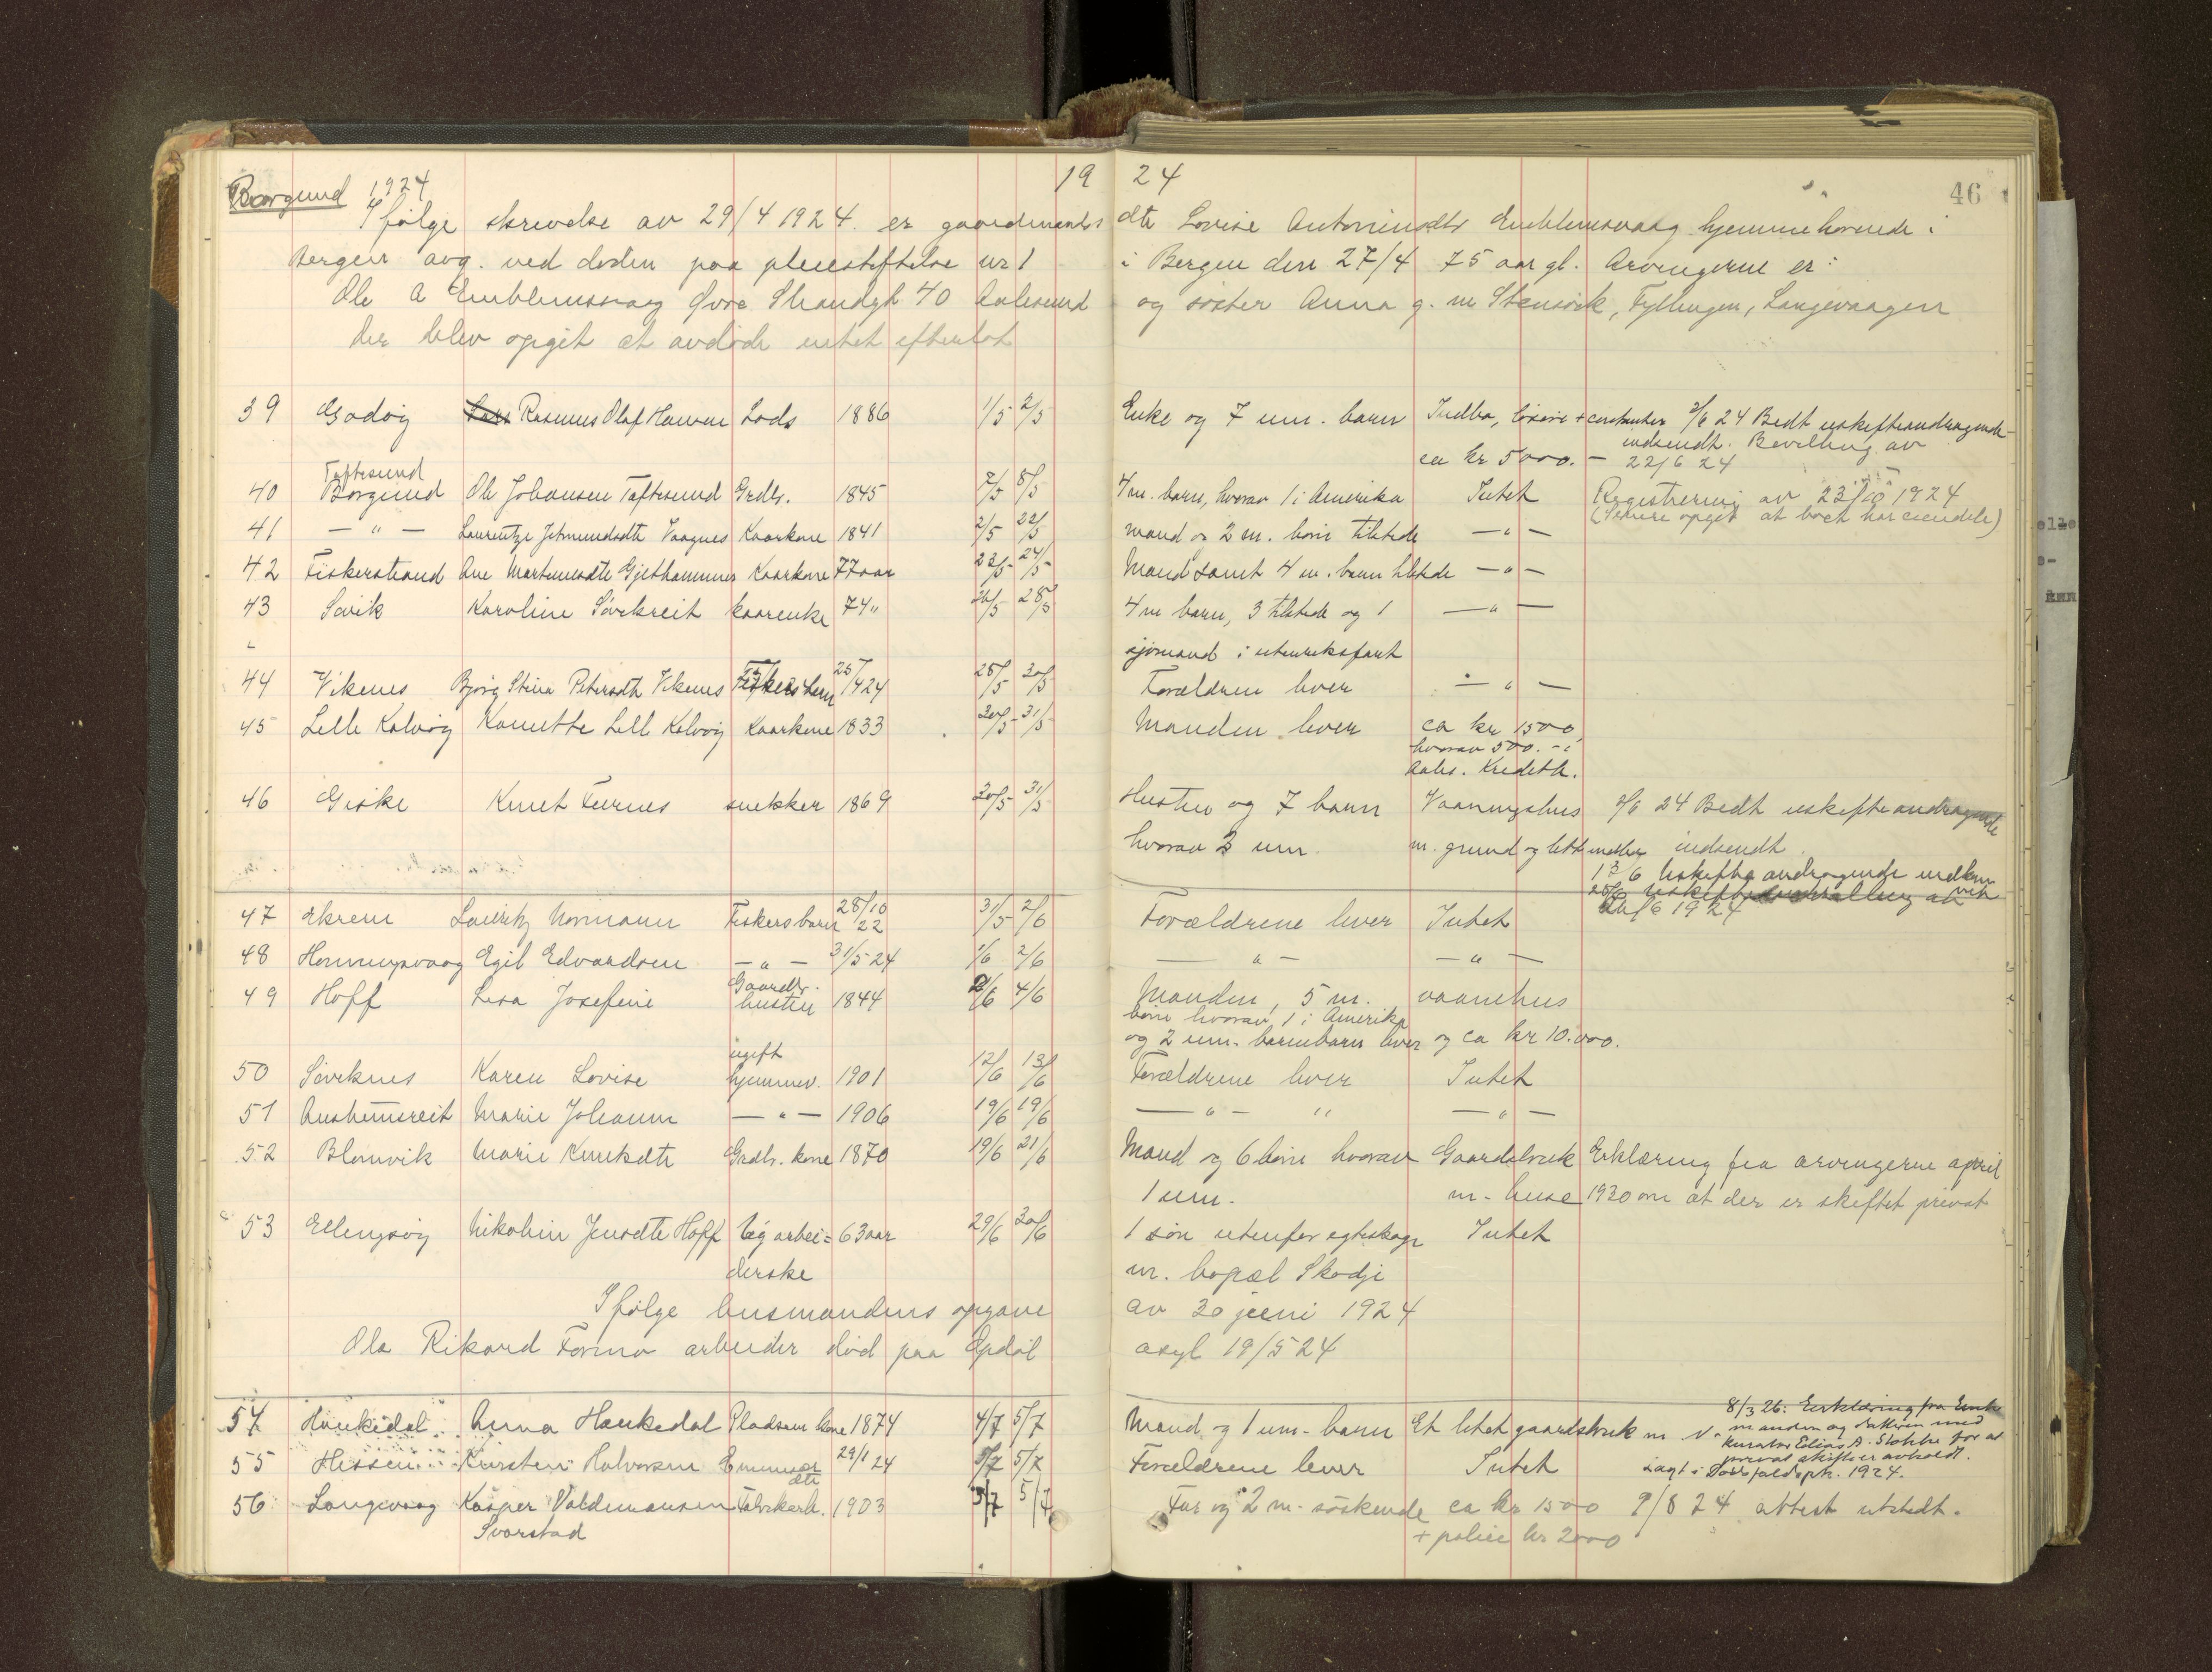 Borgund 1924
19 24
46
Ifølge skrivelse av 29/4 1924 er gaardmands dtr Lovise Antoninsdtr Emblemsvaag hjemmehørende i
Bergen avg. ved døden paa pleiestiftelse nr 1 i Bergen den 27/4 75 aar gl. Arvingerne er:
Ole A Emblemsvaag Øvre Strandgt 40 Aalesund og søster Anna g. m Stensvik, Fyllingen, Langevaagen
Der blev opgit at avdøde intet efterlot
39 Godøy Lars Rasmus Olaf Hansen Lods 1886 1/5 2/5 Enke og 7 um. barn Indbo, løsøre + contanter 2/6 24 Bedt uskifteandragende
indsendt. Bevilling av
ca kr 5000. - 22/6 24
Toftesund
40 Borgund Ole Johansen Toftesund Grdbr. 1845 7/5 8/5 4 m. barn, hvorav 1 i Amerika Intet Registrering av 23/10 1924
(Senere opgit at boet har eiendele)
41 - " - Laurentze Jetmundsdtr Vaagnes Kaarkone 1841 2/5 22/5 mand og 2 m. børn tilstede - " -
42 Fiskerstrand Ane Martinusdtr Gjethammer Kaarkone 77 aar 23/5 24/5 Mand samt 4 m. barn tilstede - " -
43 Sævik Karoline Søvikreit kaarenke 74 " 26/5 28/5 4 m barn, 3 tilstede og 1 - " -
sjømand i utenriksfart
44 Vikenes Bjørg Stina Petersdtr Vikenes Fiskers barn 25/4 24 28/5 30/5 Forældrene lever - " -
45 Lille Kalvøy Kanutte Lill Kalvøy Kaarkone 1833 30/5 31/5 Manden lever ca kr 1500,
hvorav 500. - i
Aales. Kreditb.
46 Giske Knut Furnes snekker 1869 30/5 31/5 Hustru og 7 barn Vaaningshus 2/6 24 Bedt uskifteandragende
hvorav 3 um. m. grund og litt indbo indsendt.
13/6 Uskifteandragende indkom
25/6 uskiftebevilling av
26/6 1924
47 Ekrem Lauritz Normann Fiskers barn 28/10 22 31/5 2/6 Forældrene lever Intet
48 Honningsvaag Egil Edvardsen - " - 31/5 24 1/6 2/6 - " - - " -
49 Hoff Lisa Josefine Gaardbr. hustru 1844 2/6 4/6 Manden, 5 m. vaanehus
børn hvorav 1 i Amerika
og 2 um. barnebarn lever og ca kr 10.000.
50 Søviknes Karen Lovise ugift hjemmev. 1901 12/6 13/6 Forældrene lever Intet
51 Aursheimsreit Marie Johanne - " - 1906 19/6 19/6 - " - " - " -
52 Blomvik Marie Knutsdtr Grdbr. kone 1870 19/6 21/6 Mand og 6 børn hvorav Gaardsbruk Erklæring fra arvingerne april
1 um. m. huse 1930 om at der er skiftet privat
53 Ellingsøy Nikoline Jensdtr Hoff Ug arbei= 63 aar 29/6 30/6 1 søn utenfor egteskap Intet
derske m. bopæl Skodje
Ifølge lensmandens opgave av 30 juni 1924
Ole Rikard Formo arbeider død paa Opdøl asyl 19/5 24
54 Haukedal Anna Haukedal Pladsm kone 1874 4/7 5/7 Mand og 1 um. barn Et litet gaardsbruk m v.
8/3 26: Erklæring fra Enke
manden og datteren med
kurator Edias A. Slokke for at
privat skifte er avholdt.
Lagt i Dødsfaldsprk. 1924.
55 Hessen Kirsten Halvorsen 29/1 24 3/7 5/7 Forældrene lever Intet
56 Langevaag Kasper Valdemarsen Fabrikarb. 1903 3/7 5/7 Far og 2 m. søskende ca kr 1500 9/8 24 attest utstedt.
Svorstad + police kr 2000